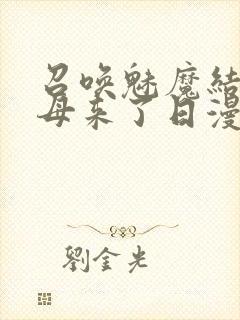 召唤魅魔结
母来了日漫
劉金光